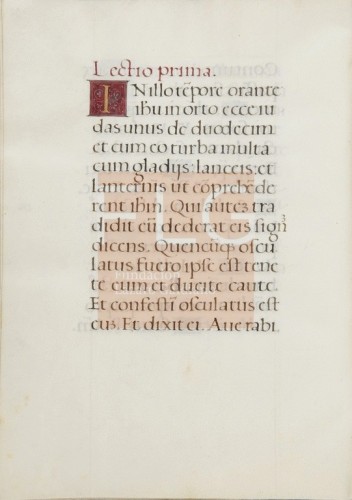 Lectio prima.
INillo tēpore orante
ihu in orto ecce iu
das unus de duodecim
et cum eo turba multa
cum gladijs: lanceis: et
lanternis ut cōprehēde
rent ihm. Qui autez tra
didit eū dederat eis sign
dicens. Quencūqȝ oscu
latus fuero ipse est tene
te eum et ducite caute.
Et confestī osculatus est
euȝ. Et dixit ei. Aue rabi.
FLG
Fundación